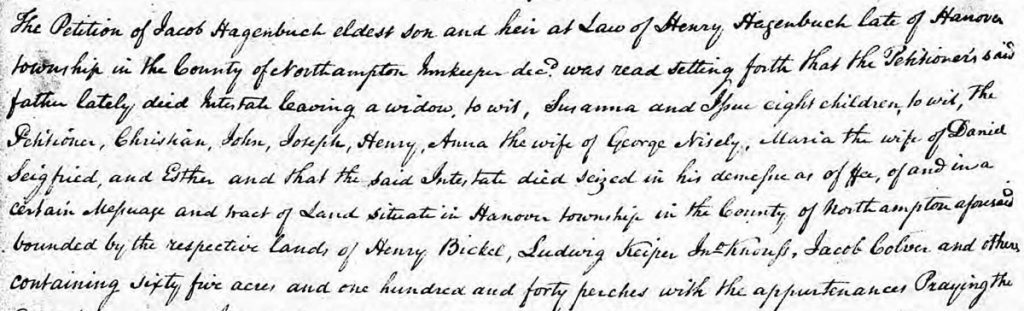 The Petition of Jacob Hagenbuch eldest son and heir at Law of Henry Hagenbuch late of Hanover
township in the County of Northampton Innkeeper decd. was read setting forth that the Petitioner's said
father lately died Intestate leaving a widow, to wit, Susanna and Issue eight children, to wit, the
Petitioner, Christian, John, Joseph, Henry, Anna the wife of George Nisely, Maria the wife of Daniel
Seigfried, and Esther and that the said Intestate died seized in his demesne as of fee, of and in a
certain Messuage and tract of Land situate in Hanover township in the County of Northampton aforesaid
bounded by the respective lands of Henry Bickel, Ludwig Keiper Jno. Knouss, Jacob Colver and others
containing sixty five acres and one hundred and forty perches with the appurtenances Praying the